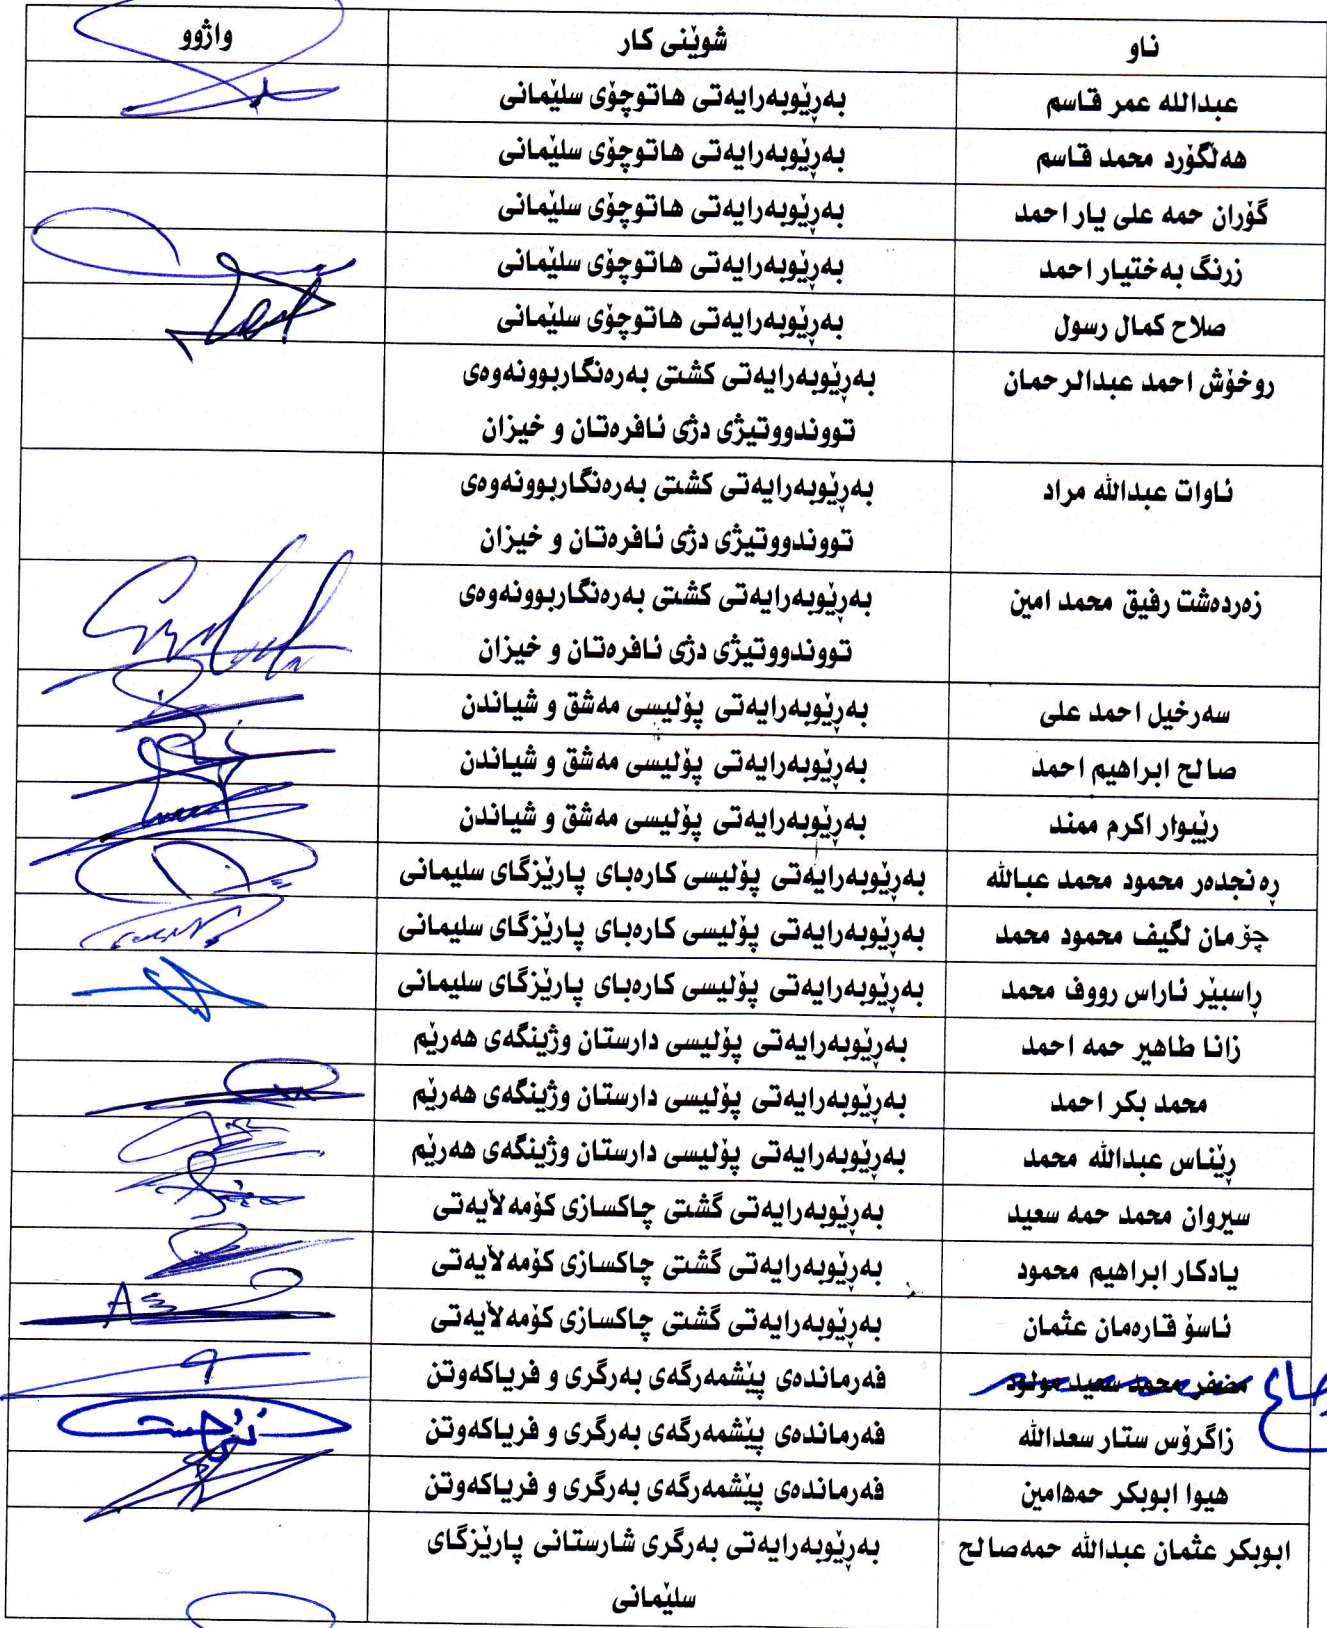 ناو شوێنی کار واژوو
عبدالله عمر قاسم بەڕێوبەرایەتی هاتوچۆی سلێمانی
هەڵگۆرد محمد قاسم بەڕێوبەرایەتی هاتوچۆی سلێمانی
گۆران حمە علی یار احمد بەڕێوبەرایەتی هاتوچۆی سلێمانی
زرنگ بەختیار احمد بەڕێوبەرایەتی هاتوچۆی سلێمانی
صلاح کمال رسول بەڕێوبەرایەتی هاتوچۆی سلێمانی
روخۆش احمد عبدالرحمان بەڕێوبەرایەتی کشتی بەرەنگاربوونەوەی
تووندووتیژی دژی ئافرەتان و خیزان
ئاوات عبدالله مراد بەڕێوبەرایەتی کشتی بەرەنگاربوونەوەی
تووندووتیژی دژی ئافرەتان و خیزان
زەردەشت رفیق محمد امین بەڕێوبەرایەتی کشتی بەرەنگاربوونەوەی
تووندووتیژی دژی ئافرەتان و خیزان
سەرخیل احمد علی بەڕێوبەرایەتی پۆلیسی مەشق و شیاندن
صالح ابراهیم احمد بەڕێوبەرایەتی پۆلیسی مەشق و شیاندن
رێیوار اکرم ممند بەڕێوبەرایەتی پۆلیسی مەشق و شیاندن
ڕەنجدەر محمود محمد عبالله بەڕێوبەرایەتی پۆلیسی کارەبای پارێزگای سلیمانی
چۆمان لگیف محمود محمد بەڕێوبەرایەتی پۆلیسی کارەبای پارێزگای سلیمانی
ڕاسبێر ئاراس رووف محمد بەڕێوبەرایەتی پۆلیسی کارەبای پارێزگای سلیمانی
زانا طاهیر حمە احمد بەڕێوبەرایەتی پۆلیسی دارستان وژینگەی هەرێم
محمد بکر احمد بەڕێوبەرایەتی پۆلیسی دارستان وژینگەی هەرێم
ڕێناس عبدالله محمد بەڕێوبەرایەتی پۆلیسی دارستان وژینگەی هەرێم
سیروان محمد حمە سعید بەڕێوبەرایەتی گشتی چاکسازی کۆمەڵایەتی
یادکار ابراهیم محمود بەڕێوبەرایەتی گشتی چاکسازی کۆمەڵایەتی
ئاسۆ قارەمان عثمان بەڕێوبەرایەتی گشتی چاکسازی کۆمەڵایەتی
مضفر محمد سعید مولود فەرماندەی پێشمەرگەی بەرگری و فریاکەوتن
زاگرۆس ستار سعدالله فەرماندەی پێشمەرگەی بەرگری و فریاکەوتن
هیوا ابوبکر حمەامین فەرماندەی پێشمەرگەی بەرگری و فریاکەوتن
ابوبکر عثمان عبدالله حمەصالح بەڕێوبەرایەتی بەرگری شارستانی پارێزگای
سلێمانی